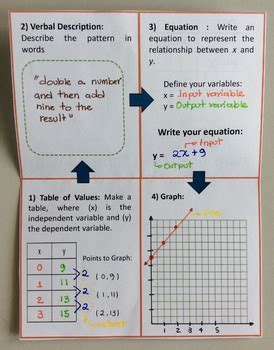 2) Verbal Description:
Describe the pattern in
words
"double a number
and then add
nine to the
result"
3) Equation : Write an
equation to represent the
relationship between x and
y.
Define your variables:
x = Input variable
y = Output variable
Write your equation:
Input
y = 2x+9
Output
1) Table of Values: Make a
table, where (x) is the
independent variable and (y)
the dependent variable.
x y
0 9
1 11
2 13
3 15
2
2
2
Points to Graph:
(0,9)
(1,11)
(2,13)
4) Graph:
1 2 3 4 5